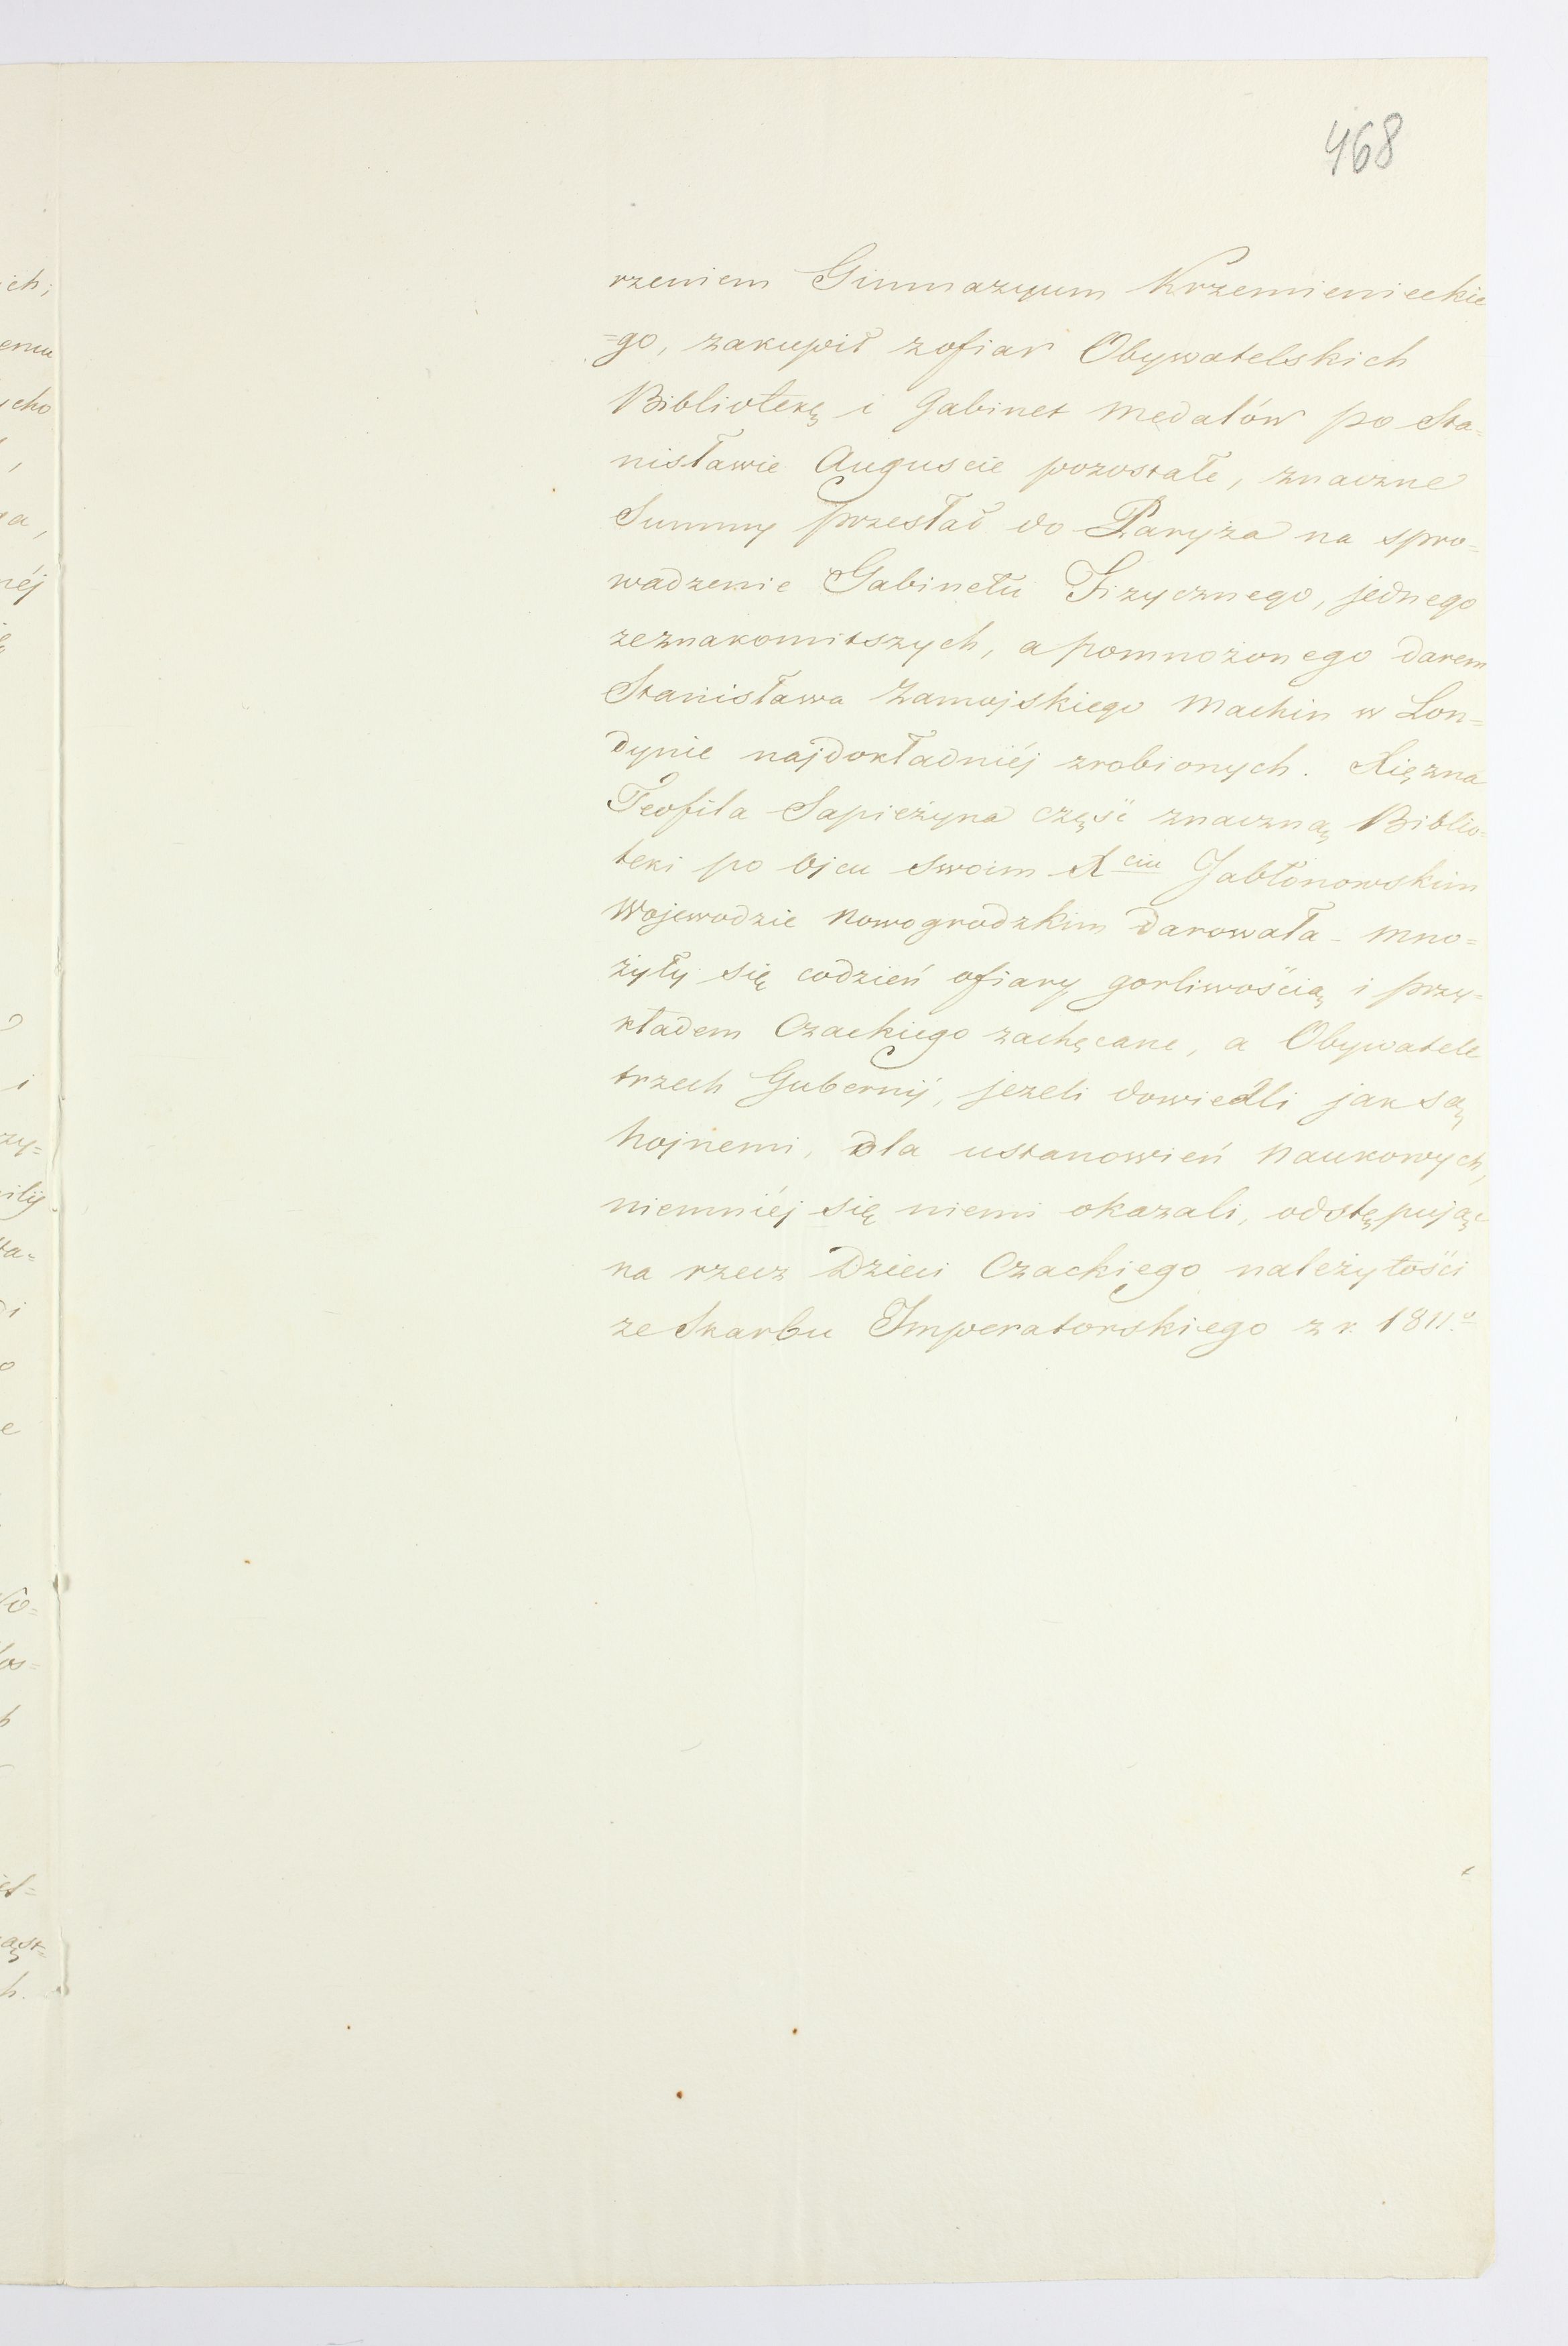 468
rzeniem Gimnazyum Krzemienieckie
=go, zakupił zofiar Obywatelskich
Bibliotekę i Gabinet medalów po Sta=
nisławie Auguscie pozostałe, znaczne
Summy przesłał do Paryża na spro=
wadzenie Gabinetu Fizycznego, jednego
zeznakomitszych, a pomnożonego darem
Stanisława Zamojskiego Machin w Lon=
dynie najdokładniéj zrobionych. Xiężna
Teofila Sapieżyna część znaczną Biblio=
teki po Ojcu swoim Xciu Jabłonowskim
Wojewodzie Nowogrodzkim darowała - mno=
żyły się codzień ofiary gorliwością i przy=
kładem Czackiego zachęcane, a Obywatele
trzech Gubernij, jezeli dowiedli jak są
hojnemi, dla ustanowień Naukowych,
niemniéj się niemi okazali, odstępując
na rzecz Dzieci Czackiego należytości
ze Skarbu Imperatorskiego z r. 1811.º